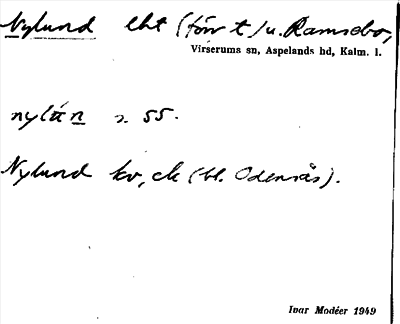 Nylund lht (förr t) u. Ramsebo,
Virserums sn, Aspelands hd, Kalm. l.
nylún s. 55.
Nylund kv, ek (bl. Odensås).
Ivar Modéer 1949